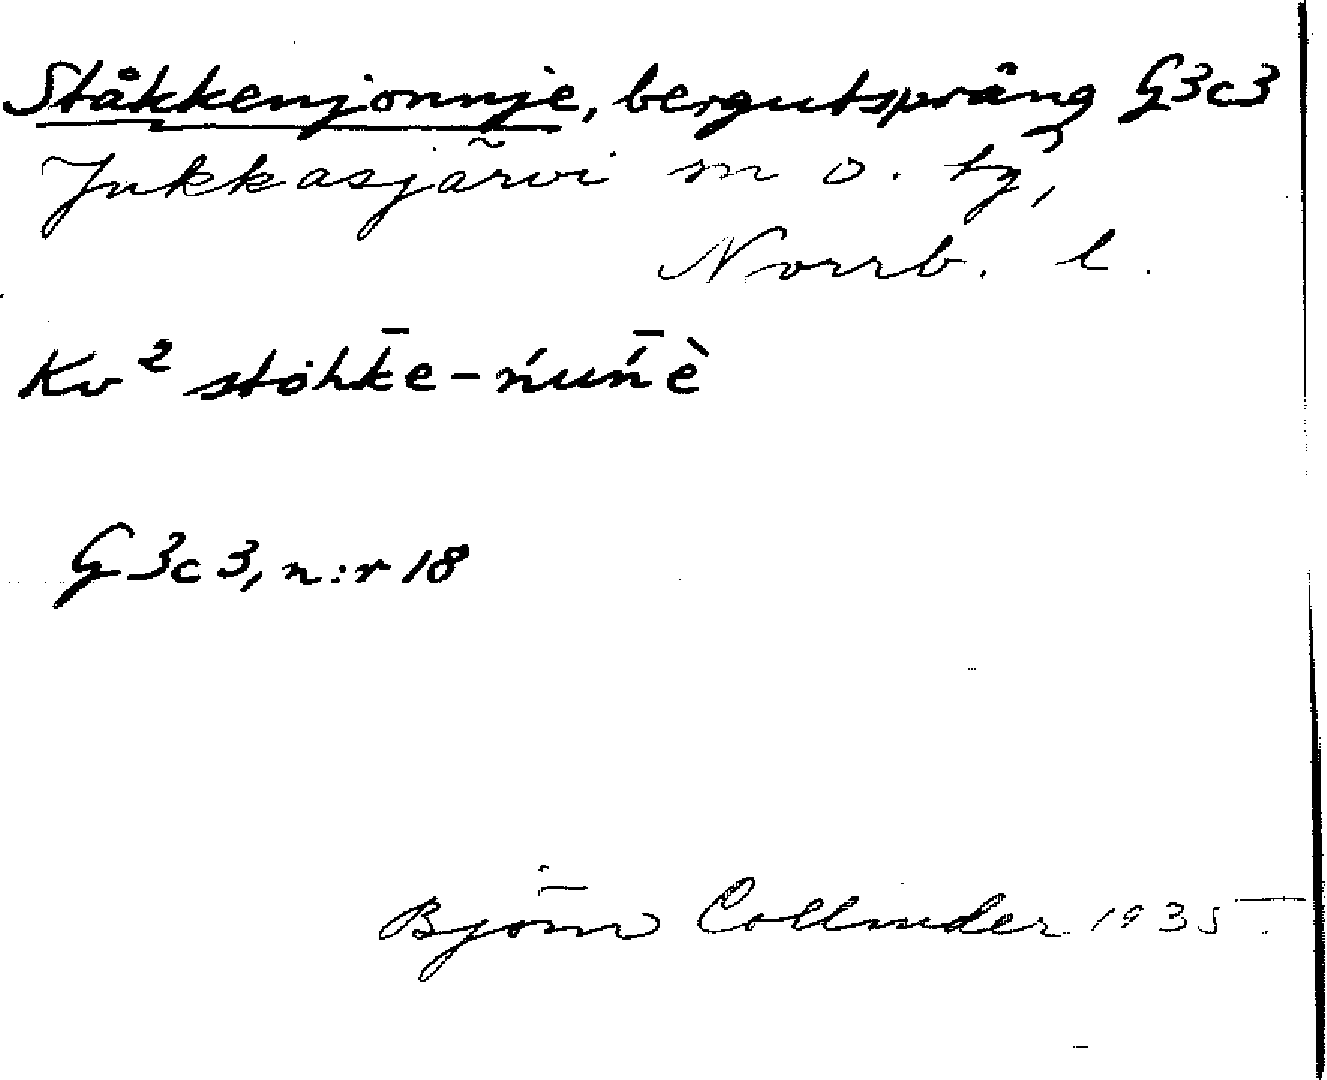 Ståkkenjonnje, bergutsprång G3c3
Jukkasjärvi sn o. tg,
Norrb. l.
Kv² stöhk̄e-ńuń̄è
G3c3, n:r 18
Björn Collinder 1935